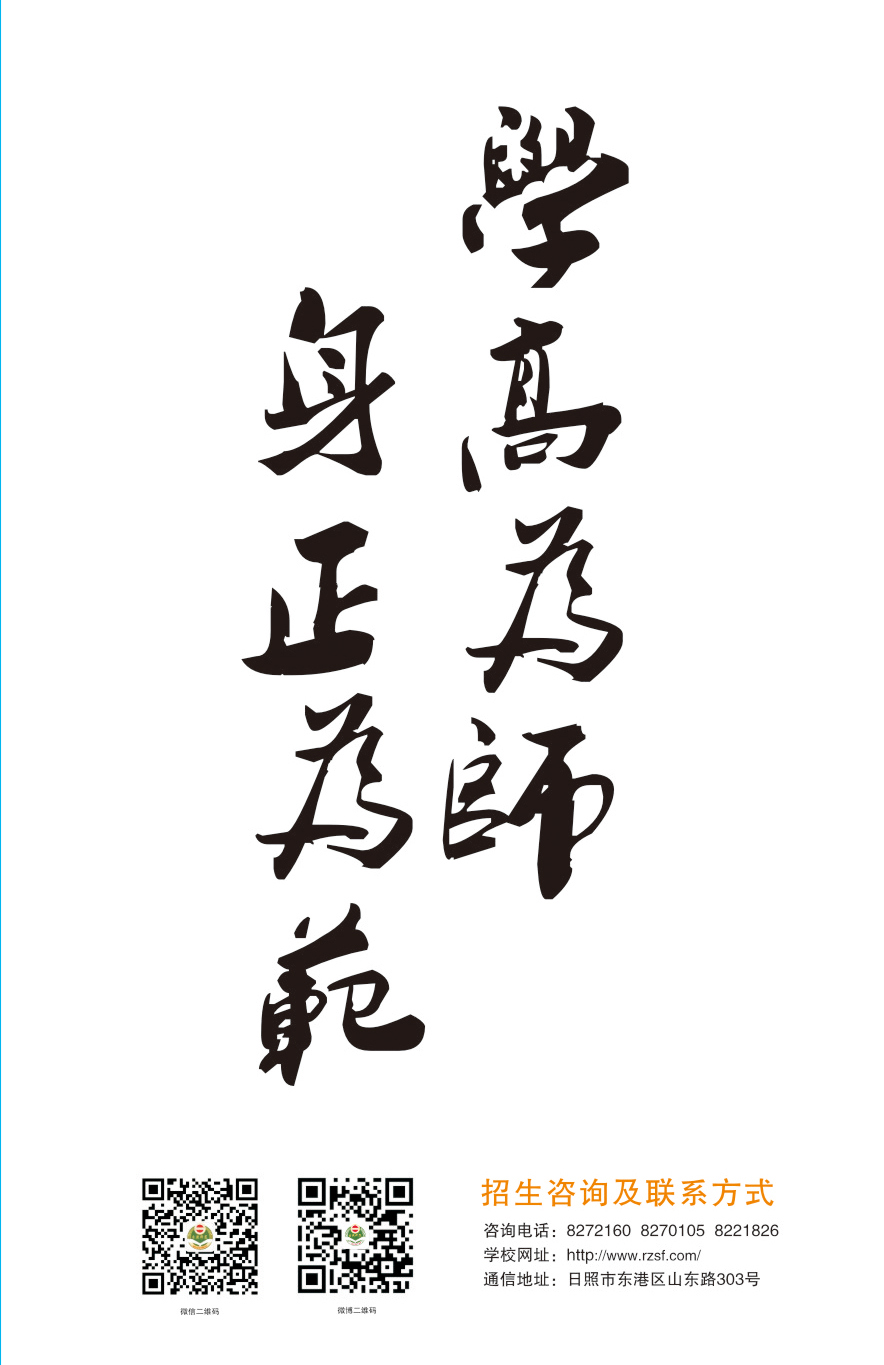 學高為師
身正為範
招生咨询及联系方式
咨询电话：8272160 8270105 8221826
学校网址：http://www.rzsf.com/
通信地址：日照市东港区山东路303号
微信二维码
微博二维码